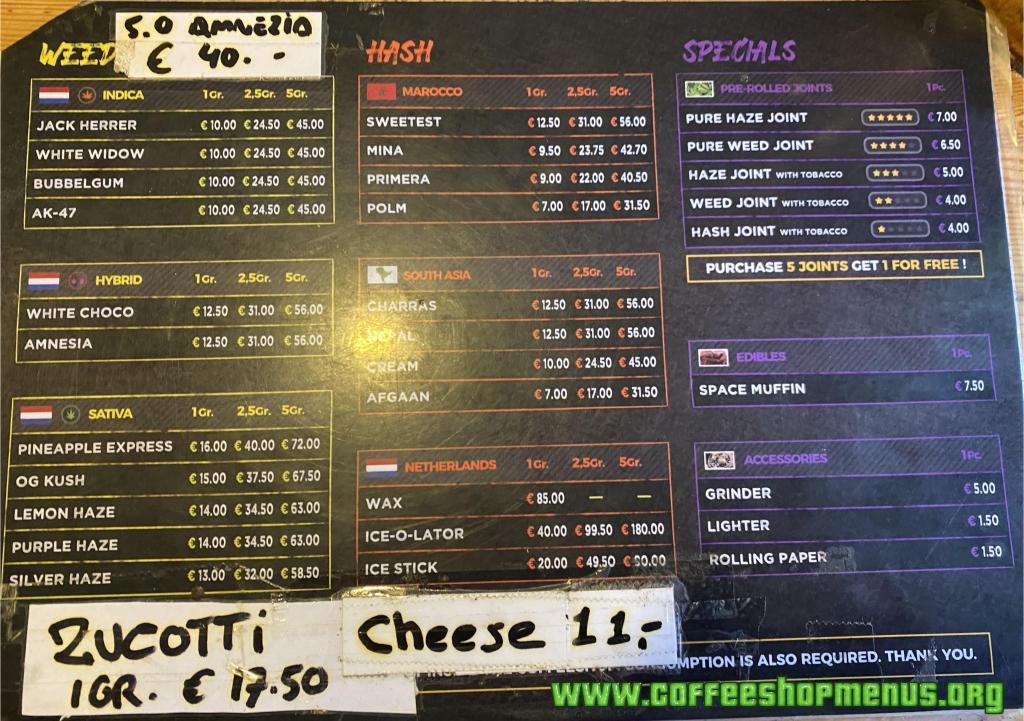 5.0 AMNEZIA
€ 40.-
WEED
INDICA 1Gr. 2,5Gr. 5Gr.
JACK HERRER € 10.00 € 24.50 € 45.00
WHITE WIDOW € 10.00 € 24.50 € 45.00
BUBBELGUM € 10.00 € 24.50 € 45.00
AK-47 € 10.00 € 24.50 € 45.00
HYBRID 1Gr. 2,5Gr. 5Gr.
WHITE CHOCO € 12.50 € 31.00 € 56.00
AMNESIA € 12.50 € 31.00 € 56.00
SATIVA 1Gr. 2,5Gr. 5Gr.
PINEAPPLE EXPRESS € 16.00 € 40.00 € 72.00
OG KUSH € 15.00 € 37.50 € 67.50
LEMON HAZE € 14.00 € 34.50 € 63.00
PURPLE HAZE € 14.00 € 34.50 € 63.00
SILVER HAZE € 13.00 € 32.00 € 58.50
ZUCOTTi
1GR. € 17.50
HASH
MAROCCO 1Gr. 2,5Gr. 5Gr.
SWEETEST € 12.50 € 31.00 € 56.00
MINA € 9.50 € 23.75 € 42.70
PRIMERA € 9.00 € 22.00 € 40.50
POLM € 7.00 € 17.00 € 31.50
SOUTH ASIA 1Gr. 2,5Gr. 5Gr.
CHARRAS € 12.50 € 31.00 € 56.00
NEPAL € 12.50 € 31.00 € 56.00
CREAM € 10.00 € 24.50 € 45.00
AFGAAN € 7.00 € 17.00 € 31.50
NETHERLANDS 1Gr. 2,5Gr. 5Gr.
WAX € 85.00 — —
ICE-O-LATOR € 40.00 € 99.50 € 180.00
ICE STICK € 20.00 € 49.50 € 90.00
Cheese 11,-
SPECIALS
PRE-ROLLED JOINTS 1Pc.
PURE HAZE JOINT € 7.00
PURE WEED JOINT € 6.50
HAZE JOINT WITH TOBACCO € 5.00
WEED JOINT WITH TOBACCO € 4.00
HASH JOINT WITH TOBACCO € 4.00
PURCHASE 5 JOINTS GET 1 FOR FREE !
EDIBLES 1Pc.
SPACE MUFFIN € 7.50
ACCESSORIES 1Pc.
GRINDER € 5.00
LIGHTER € 1.50
ROLLING PAPER € 1.50
IS ALSO REQUIRED. THANK YOU.
www.coffeeshopmenus.org